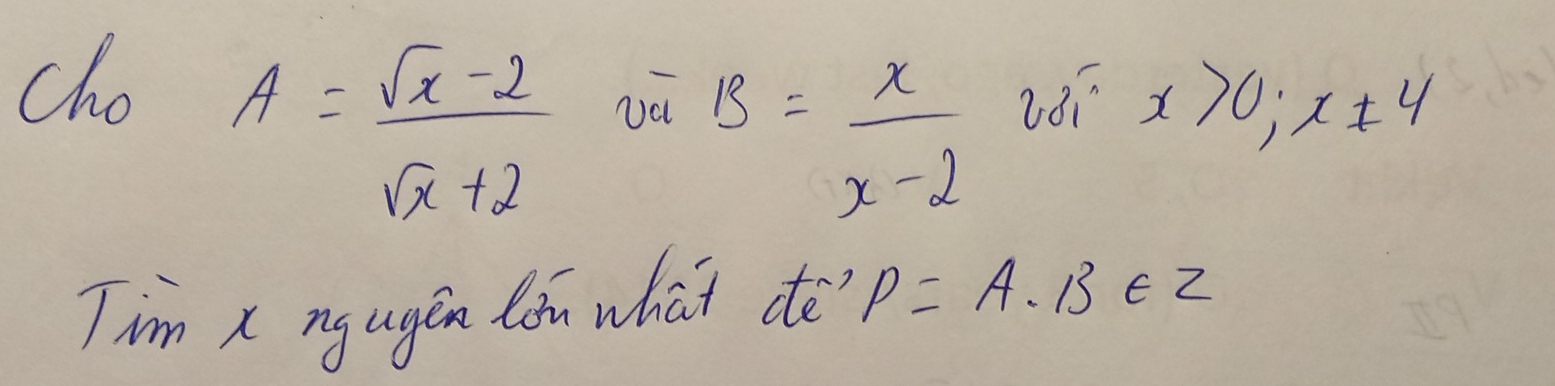 Cho A = \frac{\sqrt{x}-2}{\sqrt{x}+2} và B = \frac{x}{x-2} với x > 0; x ≠ 4
Tìm x nguyên lớn nhất để P = A.B ∈ Z